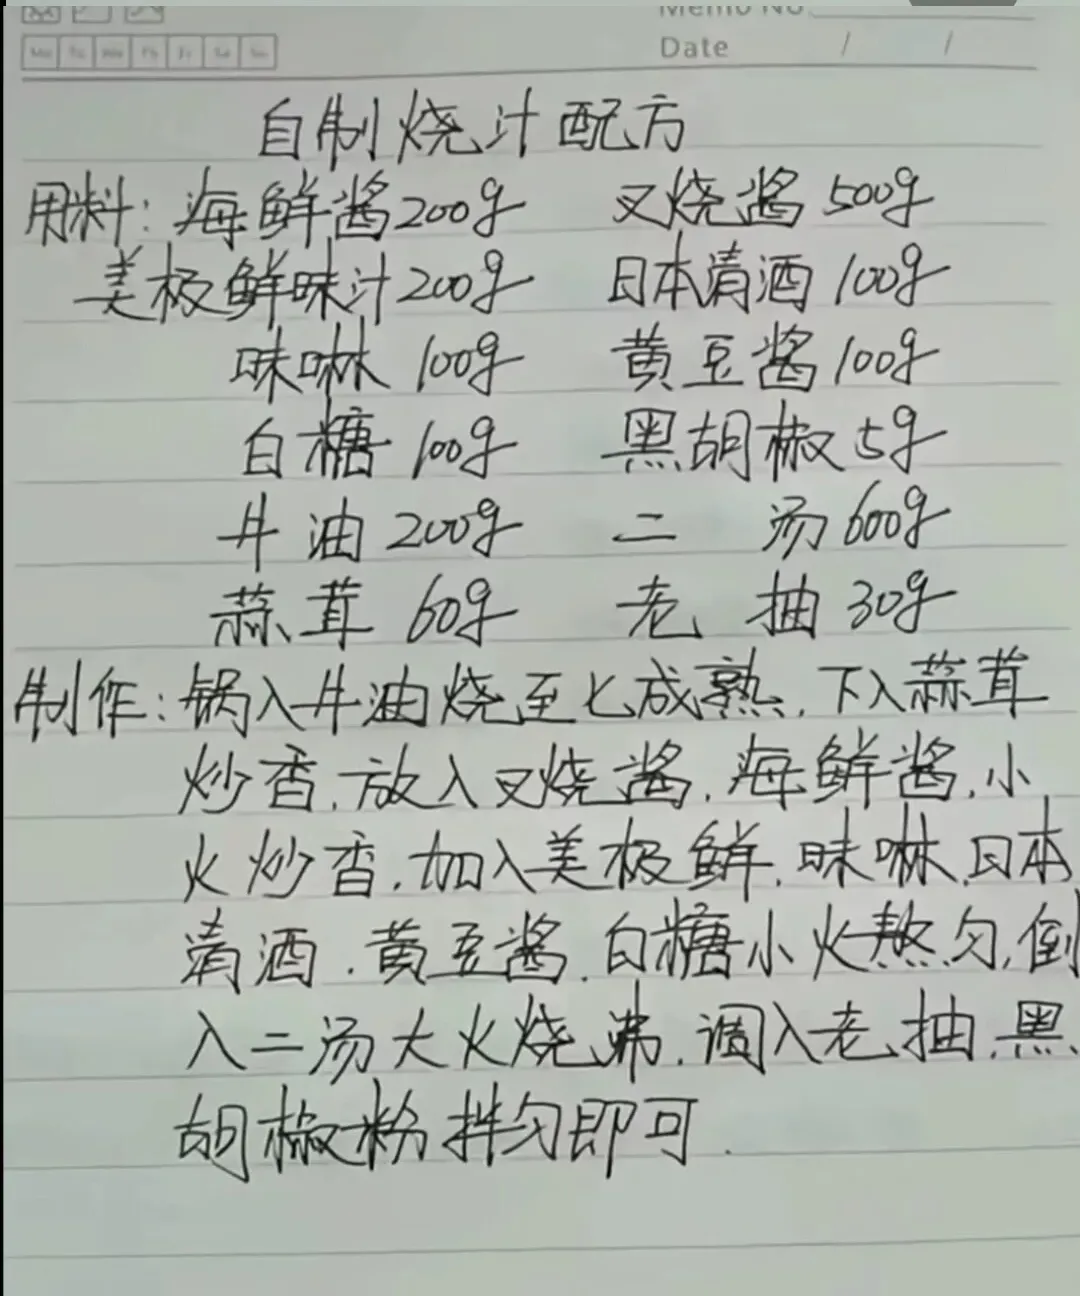 Memo No.
Mo Tu We Th Fr Sa Su
Date / /
自制烧汁配方
用料：海鲜酱200g 叉烧酱500g
美极鲜味汁200g 日本清酒100g
味啉100g 黄豆酱100g
白糖100g 黑胡椒5g
牛油200g 二汤600g
蒜茸60g 老抽30g
制作：锅入牛油烧至七成熟，下入蒜茸
炒香，放入叉烧酱，海鲜酱，小
火炒香，加入美极鲜，味啉，日本
清酒，黄豆酱，白糖小火熬匀，倒
入二汤大火烧沸，调入老抽，黑
胡椒粉拌匀即可．